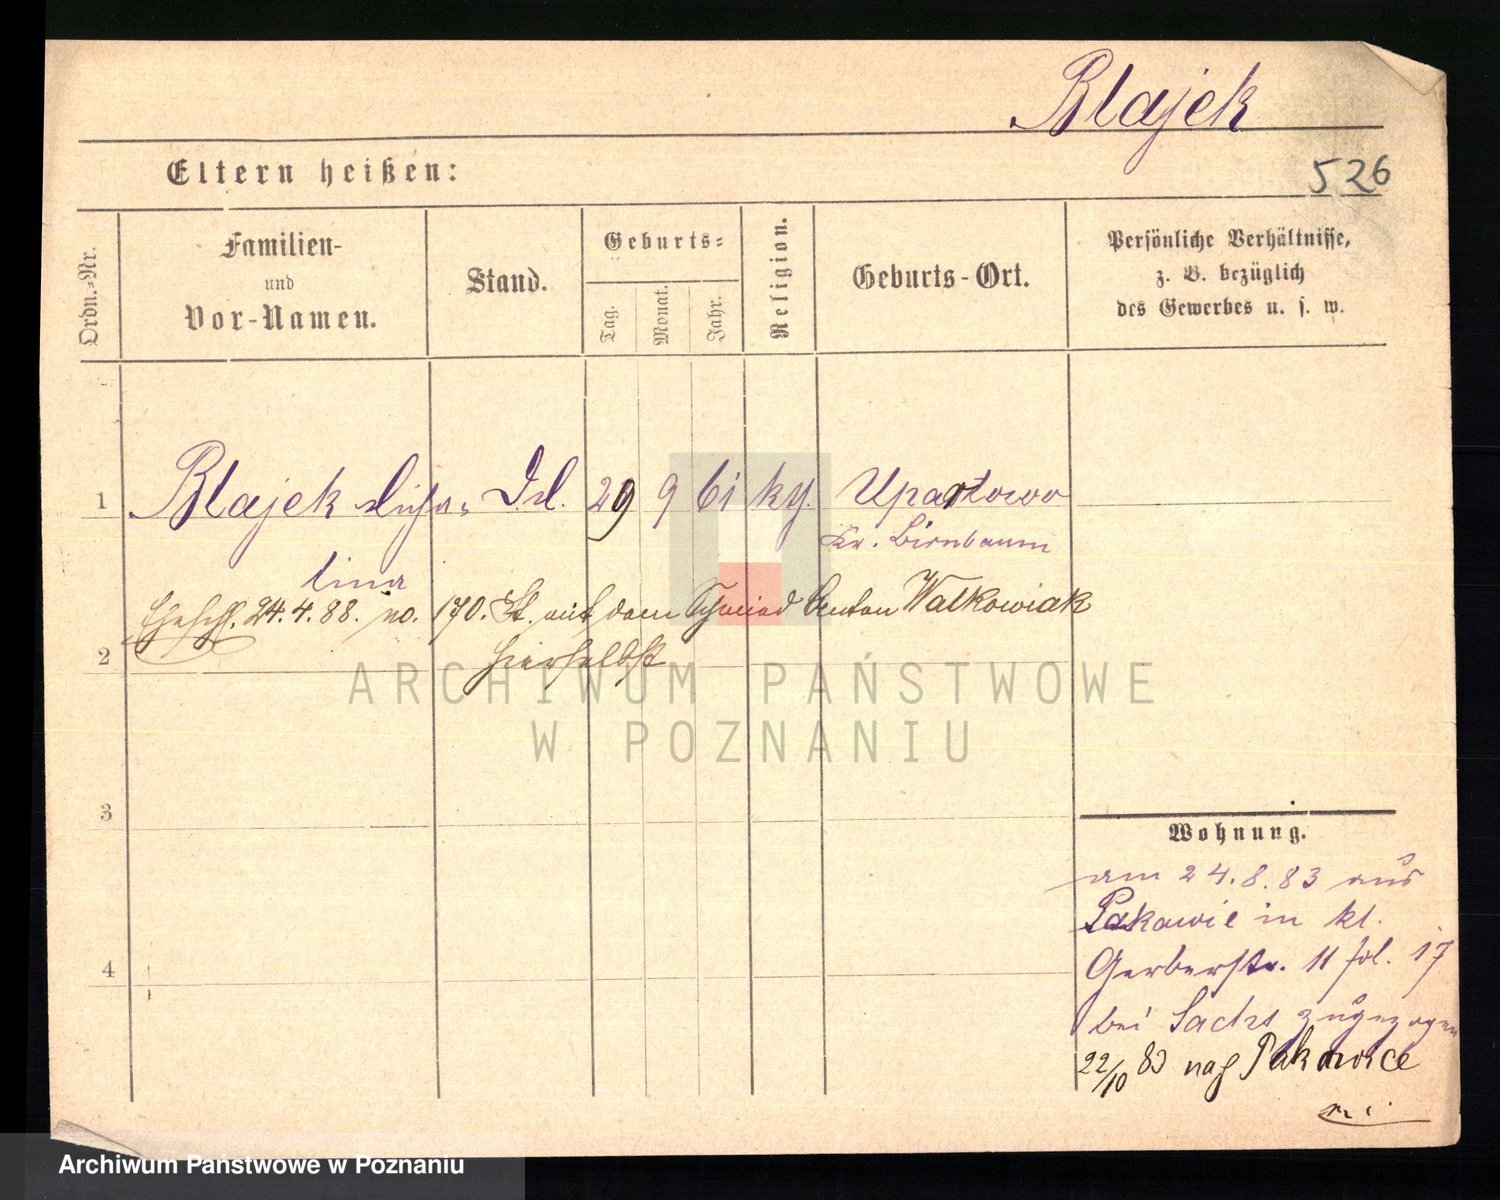 Blajek
Eltern heißen:
526
Ordn.-Nr.
Familien-
und
Vor-Namen.
Stand.
Geburts-
Tag.
Monat.
Jahr.
Religion.
Geburts-Ort.
Persönliche Verhältnisse,
z. B. bezüglich
des Gewerbes u. s. w.
1 Blajek 29 9 61 kth. Upartowo
Kr. Birnbaum
tina
Ehesch. 24.4.88. no. 170. St. mit dem Schmied Anton Walkowiak
2 hierselbst
ARCHIWUM PAŃSTWOWE
W POZNANIU
3
Wohnung.
am 24.8.83 aus
Pakawie in kl.
4
Gerberstr. 11 fol. 17
bei Sachs zugezogen
22/10 83 nach Pakawice
Archiwum Państwowe w Poznaniu